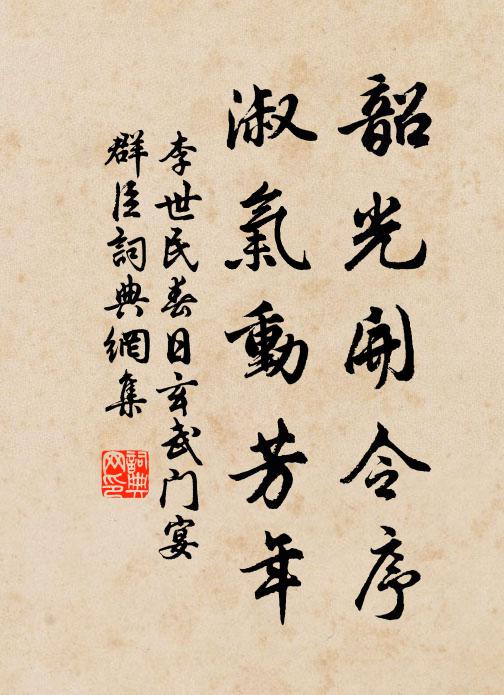 韶光開令序
淑氣動芳年
李世民春日玄武门宴
群臣詞典網集
詞典网印